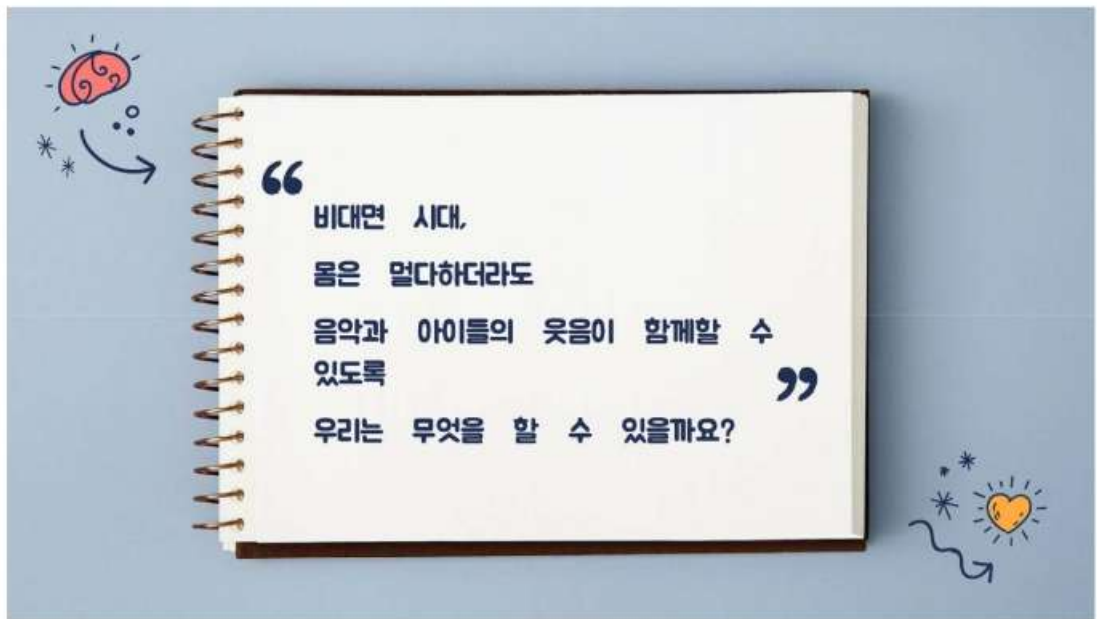 “
비대면 시대,
몸은 멀다하더라도
음악과 아이들의 웃음이 함께할 수
있도록
”
우리는 무엇을 할 수 있을까요?